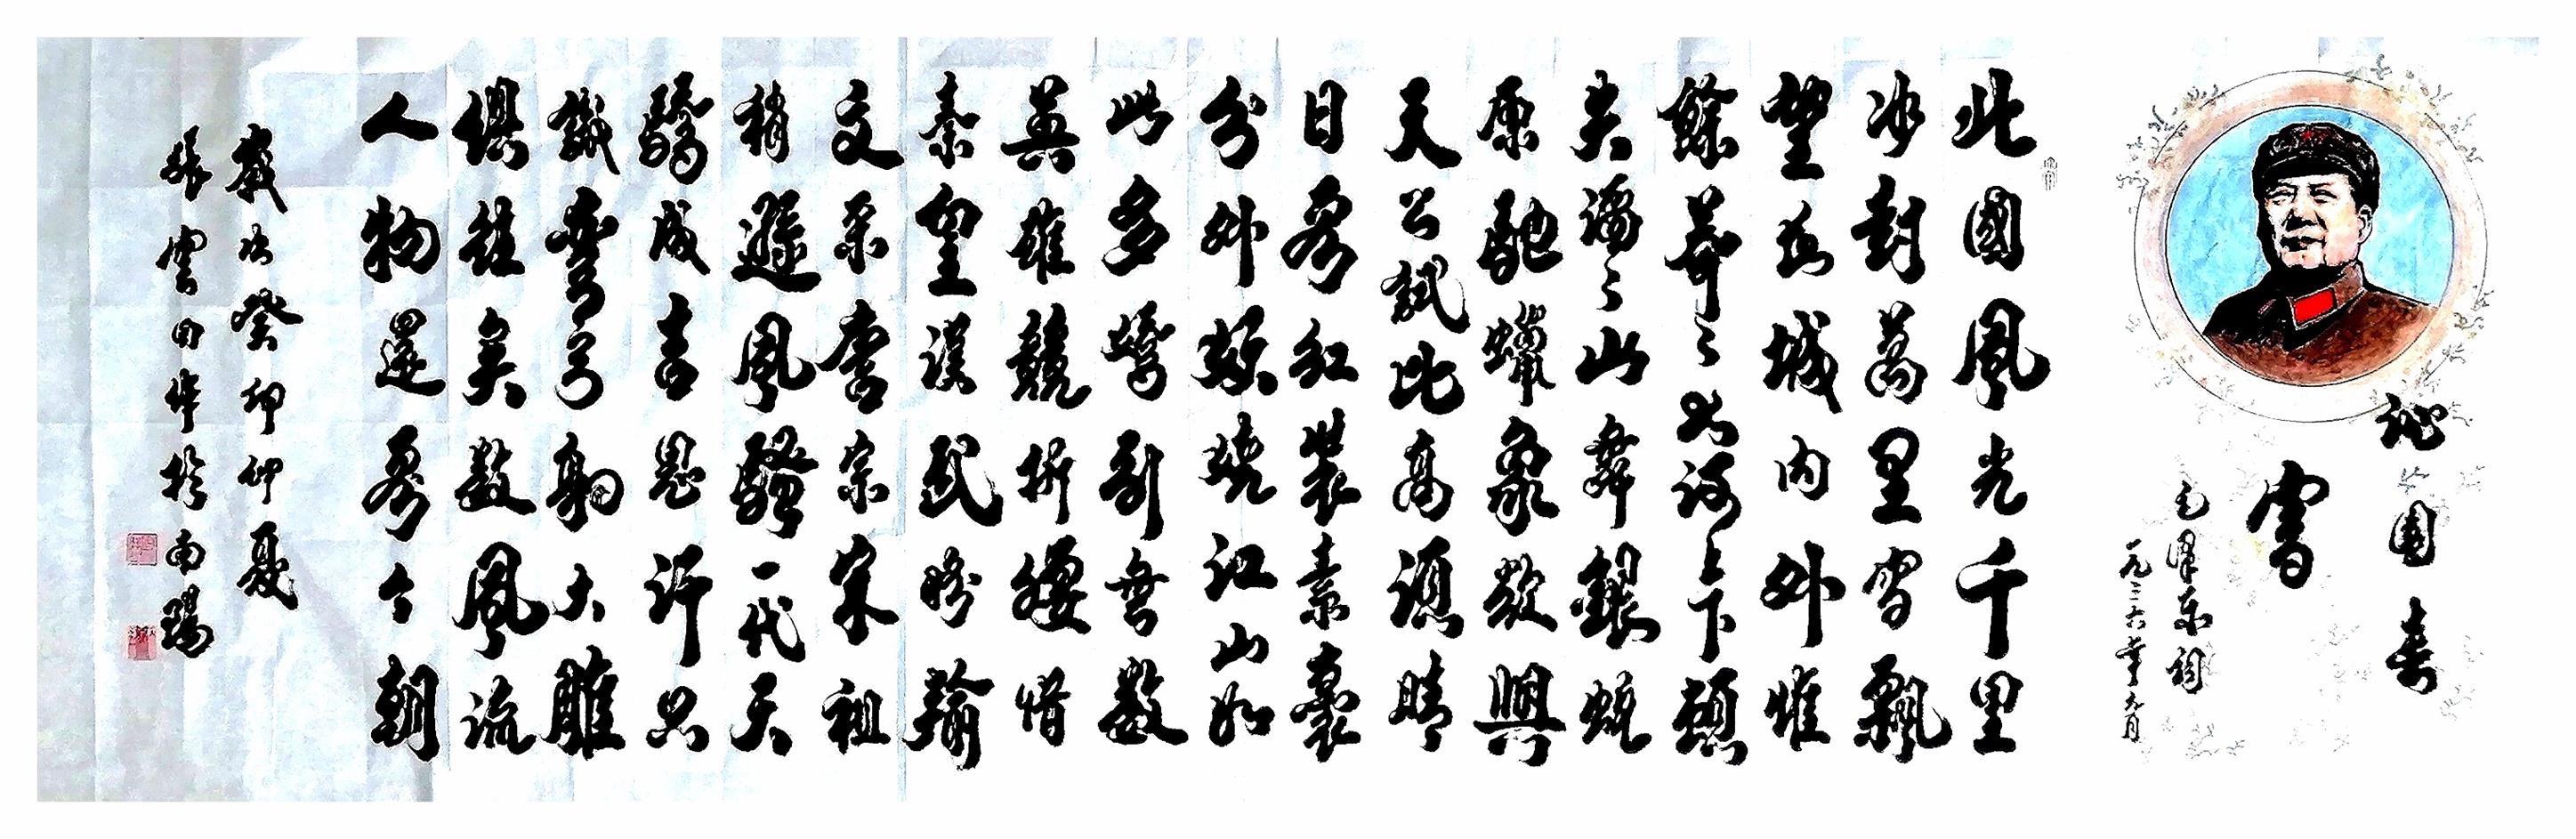 沁園春
雪
毛澤東詞
北國風光千里
冰封萬里雪飄
望長城內外惟
餘莽〻大河上下頓
失滔〻山舞銀蛇
原馳蠟象欲與
天公試比高須晴
日看紅裝素裹
分外妖嬈江山如
此多嬌引無數
英雄競折腰惜
秦皇漢武略輸
文采唐宗宋祖
稍遜風騷一代天
驕成吉思汗只
識彎弓射大雕
俱往矣數風流
人物還看今朝
歲次癸卯仲夏
張雲於南陽